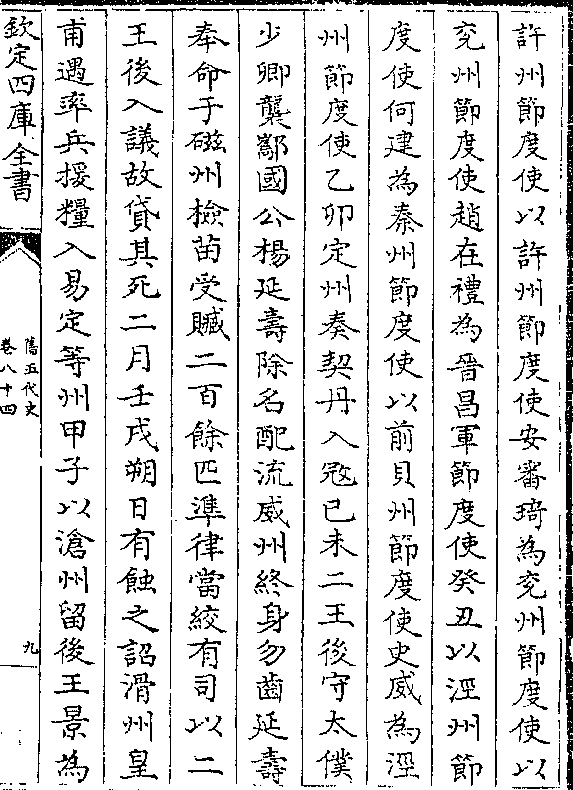 許州節度使以許州節度使安審琦為兖州節度使以
兖州節度使趙在禮為晉昌軍節度使癸丑以涇州節
度使何建為秦州節度使以前貝州節度使史威為涇
州節度使乙卯定州奏契丹入宼己未二王後守太僕
少卿襲鄅國公楊延壽除名配流威州終身勿齒延壽
奉命于磁州檢苗受贓二百餘匹準律當絞有司以二
王後入議故貸其死二月壬戌朔日有蝕之詔滑州皇
甫遇率兵援糧入易定等州甲子以滄州留後王景為
欽定四庫全書
舊五代史
卷八十四
九